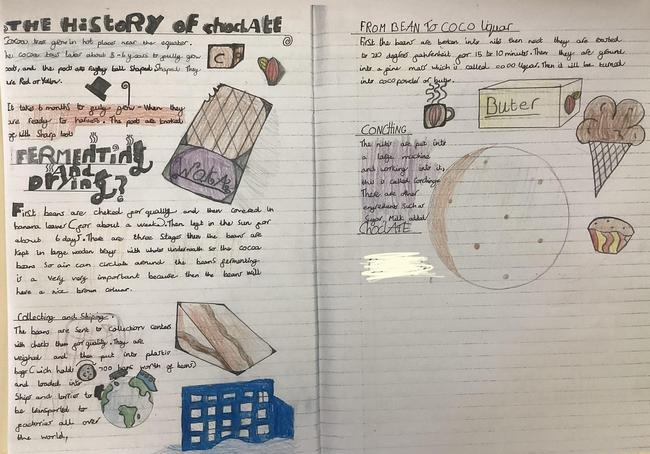 THE HISTORY of choclATE
Cocoa trees grow in hot places near the equator.
The cocoa trees take about 3-6 years to fully grow
pods, and the pods are rugby ball Shaped Shaped. They
are Red or Yellow.
It takes 6 months to fully grow - When they
are ready to harvest. The pods are
of with Sharp tools
C
WONKA
FERMENTING
AND
DRYING?
First beans are cheked for quality and then covered in
banana leaves (for about a week). Then left in the sun for
about 6 days. There are three Stages then the beans are
kept in large wooden trays with wholes underneath So the cocoa
beans. So air can circulate around the beans fermenting
is a very very important because then the beans will
have a nice brown colour.
Collecting and Shiping.
The beans are sent to collection centers
with checks them for quality. They are
weighed and then put into plastic
bags (wich holds 700 bars worth of beans)
and loaded into
Ships and lorries to
be transported to
factories all over
the world,
FROM BEAN TO COCO liquar
First the beans are broken into nibs then next they are roasted
to 210 degrees fahrenheit for 15 to 10 minutes. Then they are ground
into a fine mass which is called coco liquar. Then it will be turned
into coco powder or butter.
Buter
CONCHING
The nibs are put into
a large machine
and working into it,
this is called Conching.
There are other
engredients Such as
Sugar, Milk added
ChoCLATE